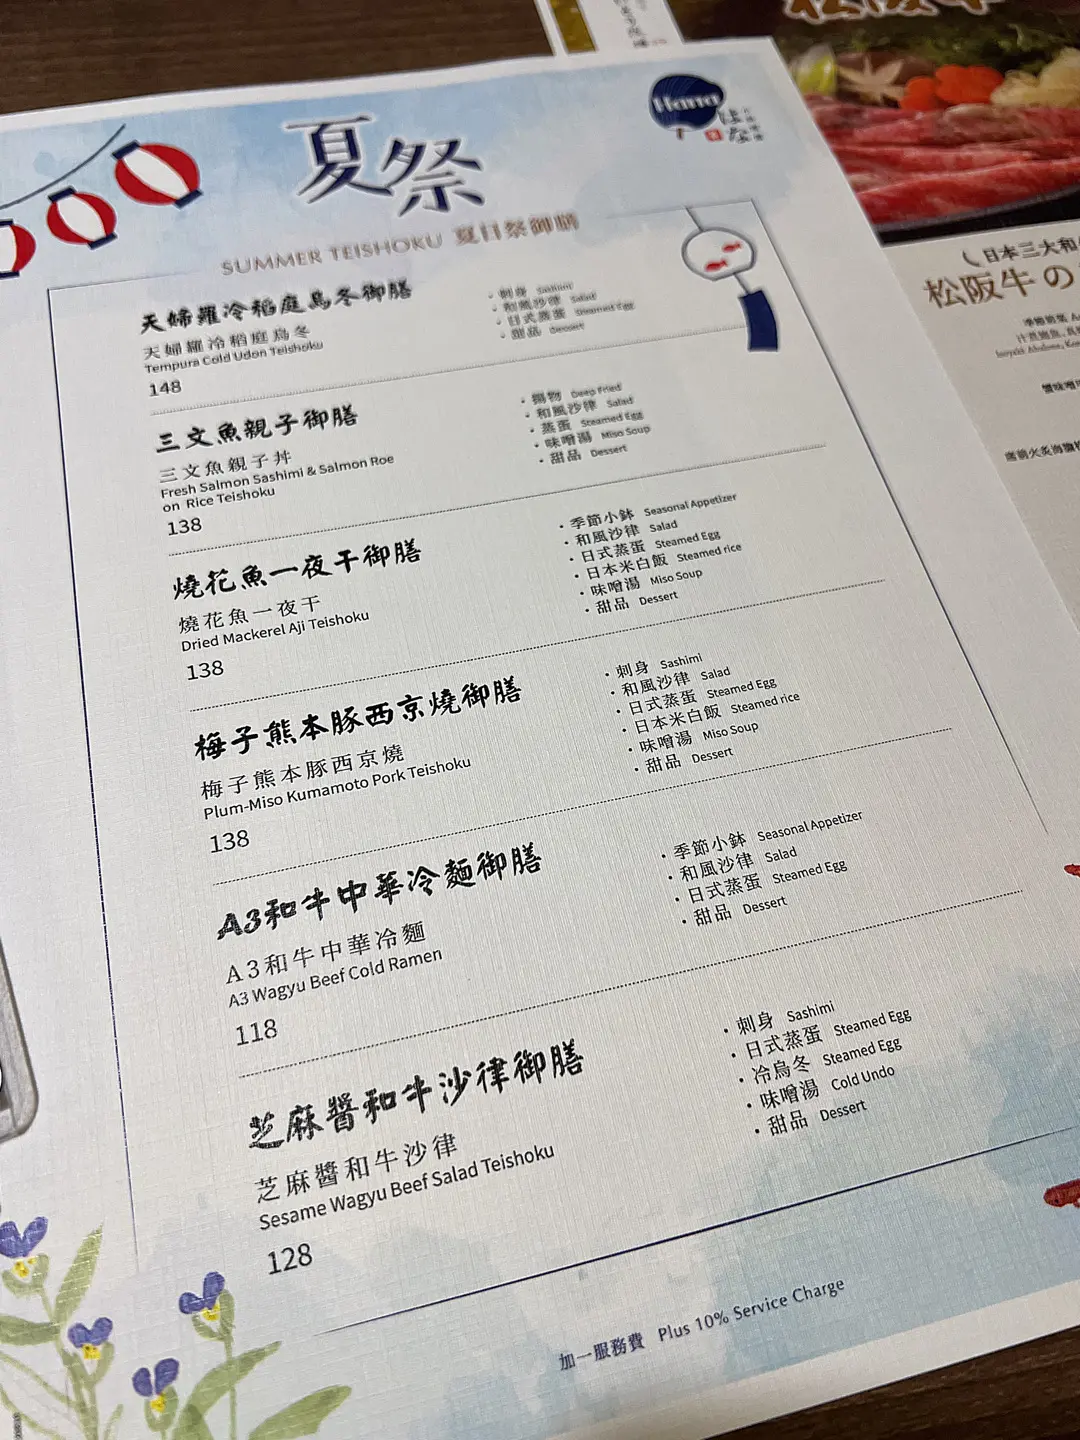 夏祭
Hana
はな
SUMMER TEISHOKU 夏日祭御膳
天婦羅冷稻庭烏冬御膳
天婦羅冷稻庭烏冬
Tempura Cold Udon Teishoku
148
・刺身 Sashimi
・和風沙律 Salad
・日式蒸蛋 Steamed Egg
・甜品 Dessert
三文魚親子御膳
三文魚親子丼
Fresh Salmon Sashimi & Salmon Roe
on Rice Teishoku
138
・揚物 Deep Fried
・和風沙律 Salad
・蒸蛋 Steamed Egg
・味噌湯 Miso Soup
・甜品 Dessert
燒花魚一夜干御膳
燒花魚一夜干
Dried Mackerel Aji Teishoku
138
・季節小鉢 Seasonal Appetizer
・和風沙律 Salad
・日式蒸蛋 Steamed Egg
・日本米白飯 Steamed rice
・味噌湯 Miso Soup
・甜品 Dessert
梅子熊本豚西京燒御膳
梅子熊本豚西京燒
Plum-Miso Kumamoto Pork Teishoku
138
・刺身 Sashimi
・和風沙律 Salad
・日式蒸蛋 Steamed Egg
・日本米白飯 Steamed rice
・味噌湯 Miso Soup
・甜品 Dessert
A3和牛中華冷麵御膳
A3和牛中華冷麵
A3 Wagyu Beef Cold Ramen
118
・季節小鉢 Seasonal Appetizer
・和風沙律 Salad
・日式蒸蛋 Steamed Egg
・甜品 Dessert
芝麻醬和牛沙律御膳
芝麻醬和牛沙律
Sesame Wagyu Beef Salad Teishoku
128
・刺身 Sashimi
・日式蒸蛋 Steamed Egg
・冷烏冬 Steamed Egg
・味噌湯 Cold Undo
・甜品 Dessert
加一服務費 Plus 10% Service Charge
日本三大和
松阪牛の